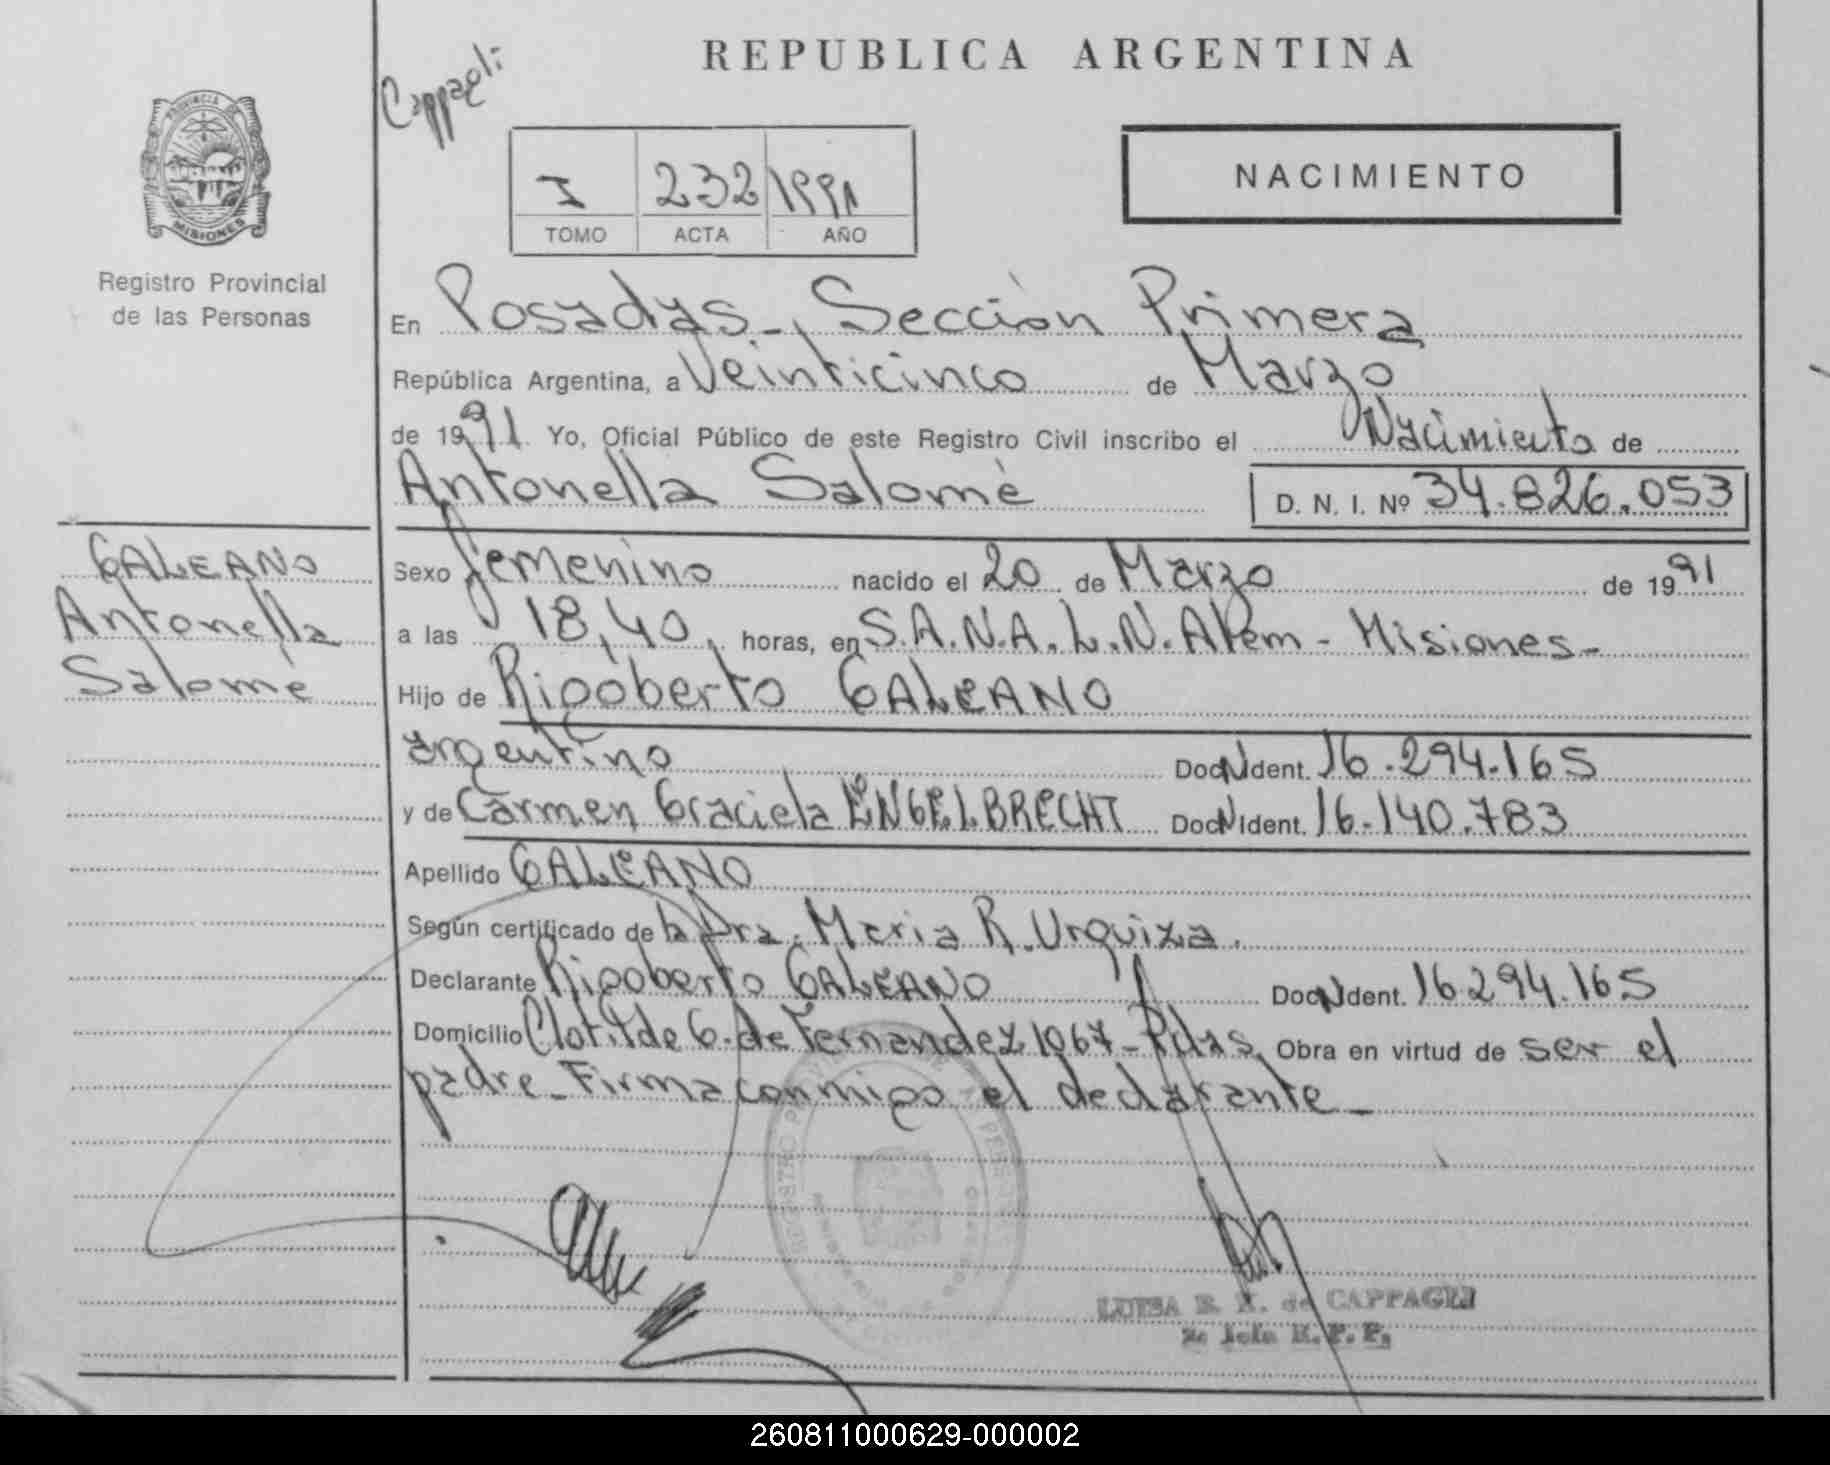 REPUBLICA ARGENTINA
Cappagli
PROVINCIA DE
MISIONES
Registro Provincial
de las Personas
I 232 1991
TOMO ACTA AÑO
NACIMIENTO
En Posadas_, Sección Primera
República Argentina, a Veinticinco de Marzo
de 1991 Yo, Oficial Público de este Registro Civil inscribo el Nacimiento de
Antonella Salomé D. N. I. Nº 34.826.053
GALEANO
Antonella
Salomé
Sexo femenino nacido el 20 de Marzo de 1991
a las 18,40, horas, en S.A.N.A.L.N. Alem - Misiones-
Hijo de Rigoberto GALEANO
argentino Doc N Ident. 16.294.165
y de Carmen Graciela ENGELBRECHT Doc N Ident. 16.140.783
Apellido GALEANO
Según certificado de la Dra. Maria R. Urquiza.
Declarante Rigoberto GALEANO Doc N Ident. 16294.165
Domicilio Clotilde G. de Fernandez 1067-Pdas. Obra en virtud de ser el
padre_Firma conmigo el declarante_
LUISA E. K. de CAPPAGLI
R. P. P.
260811000629-000002